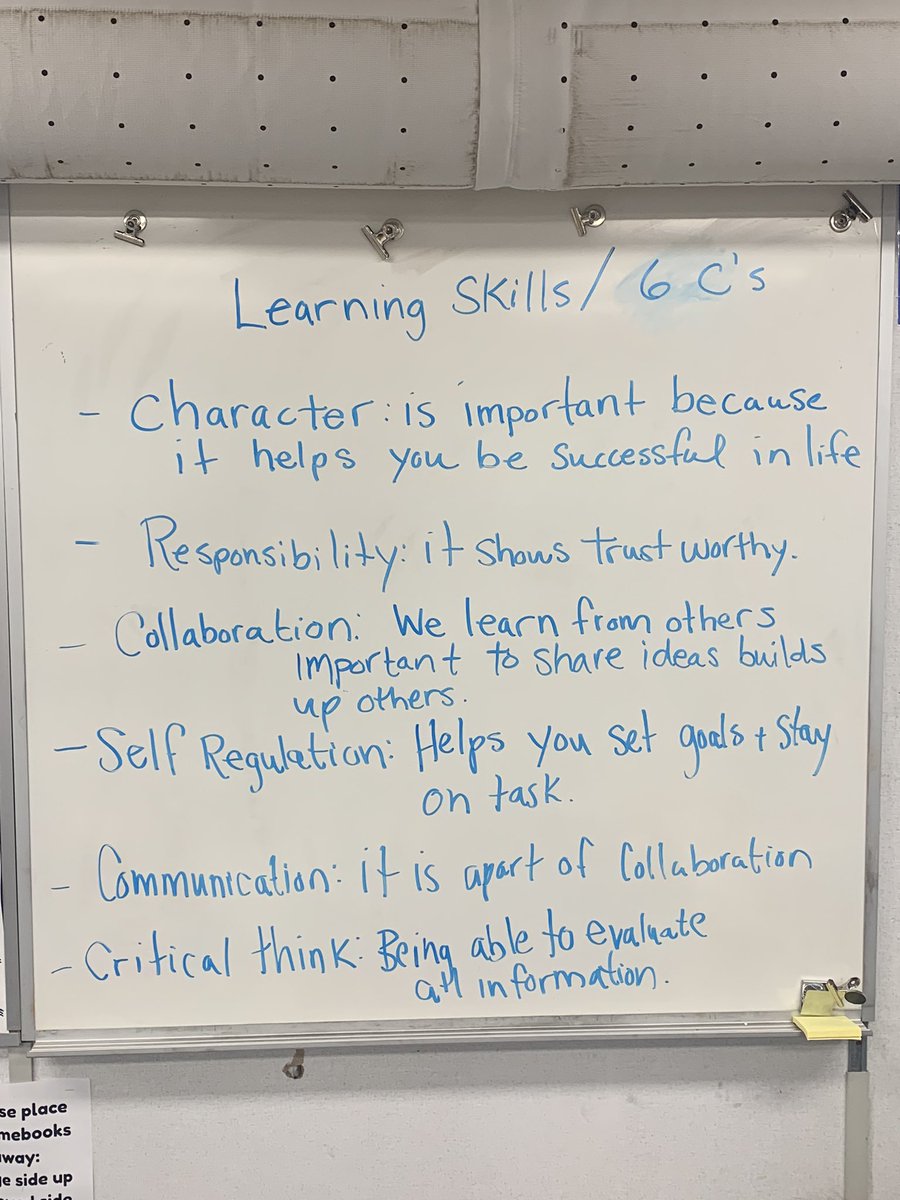 Learning Skills/ 6 C's
- Character: is important because
it helps you be successful in life
- Responsibility: it shows trust worthy.
- Collaboration: We learn from others
important to share ideas builds
up others.
- Self Regulation: Helps you set goals + stay
on task.
- Communication: it is apart of Collaboration
- Critical think: Being able to evaluate
all information.
se place
mebooks
way:
e side up